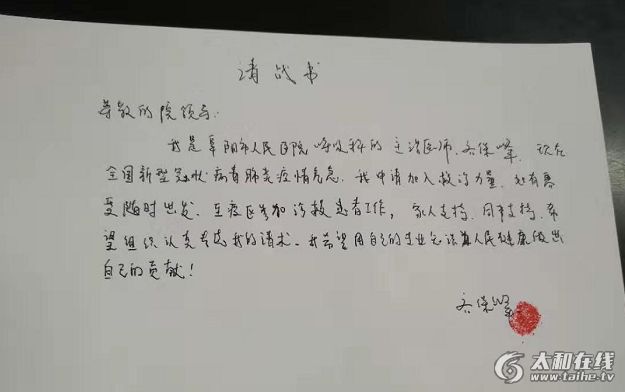 请战书
尊敬的院领导:
我是阜阳市人民医院呼吸科的主治医师, 齐保峰, 现在
全国新型冠状病毒肺炎疫情危急, 我申请加入救治力量,
受随时出发, 至疫区参加诊救患者工作, 家人支持, 同事支持, 希
望组织认真考虑我的请求。我希望用自己的专业知识为人民健康做出
自己的贡献!
齐保峰
太和在线
www.taihe.tv